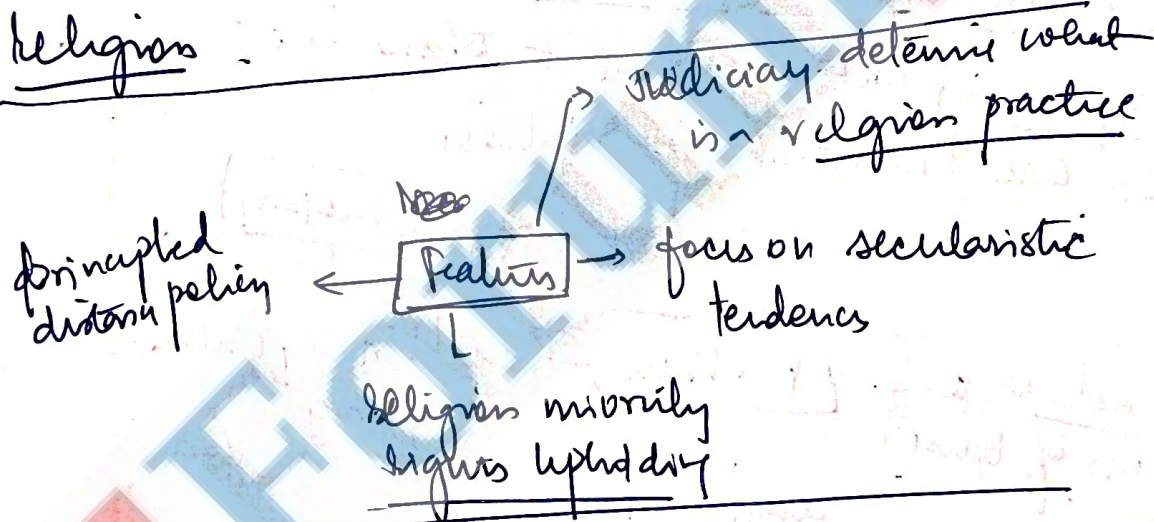 Religion
Judiciary determine what
is a religion practice
principled
distance policy
Features
focus on secularistic
tendency
religion minority
rights upholding
Forum